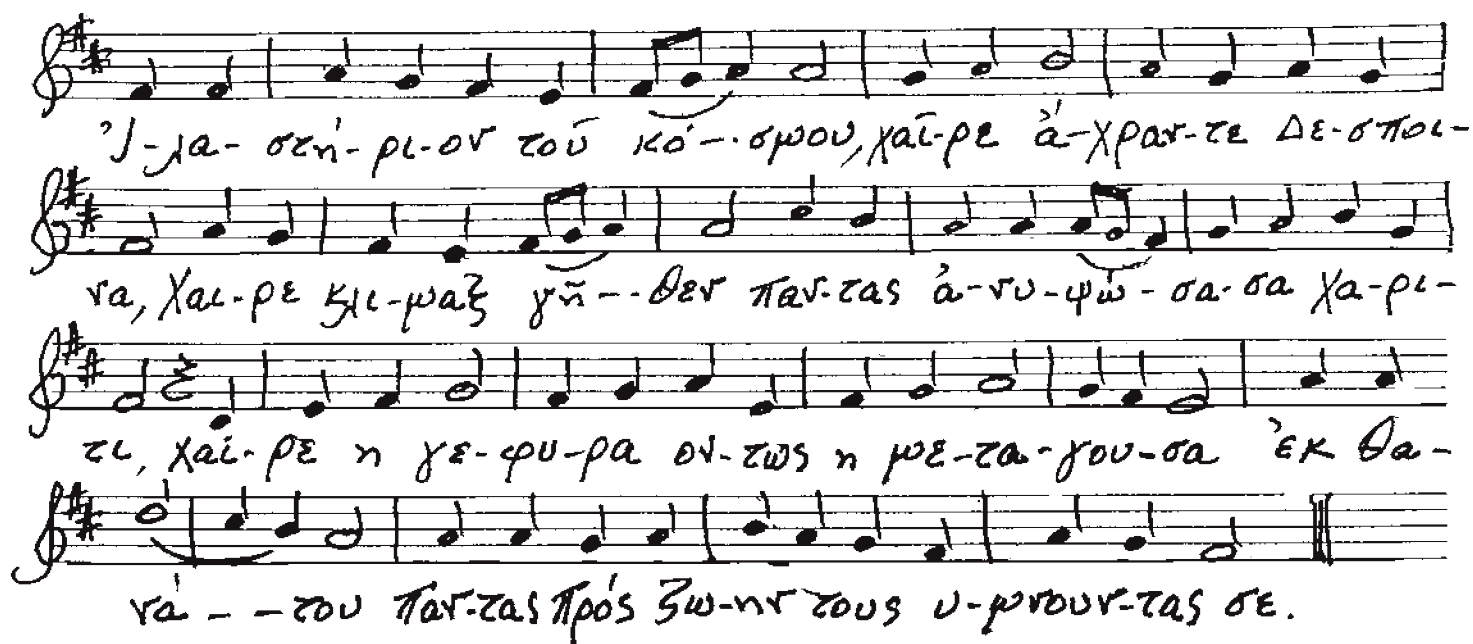 Ἰ-λα-στή-ρι-ον τοῦ κό--σμου, χαῖ-ρε ἄ-χραν-τε Δε-σποι-
να, χαι-ρε κλι-μαξ γῆ--θεν παν-τας ἀ-νυ-ψώ-σα-σα χα-ρι-
τι, χαί-ρε η γε-φυ-ρα ον-τως η με-τα-γου-σα ἐκ θα-
νά--του παν-τας πρός ζω-ην τους υ-μνουν-τας σε.